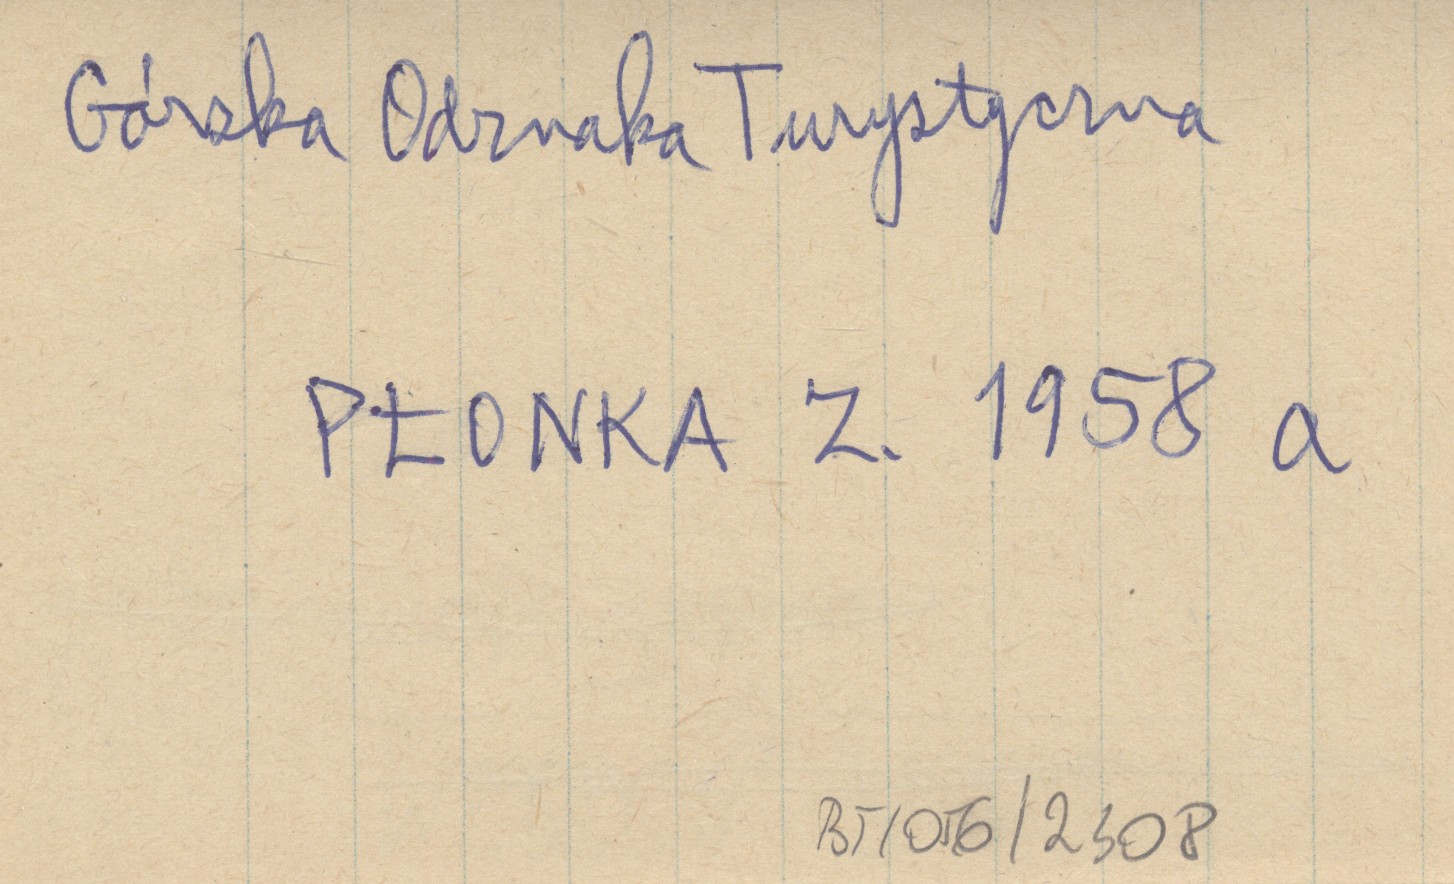 Górska Odznaka Turystyczna
PŁONKA Z. 1958 a
BT/056/2308